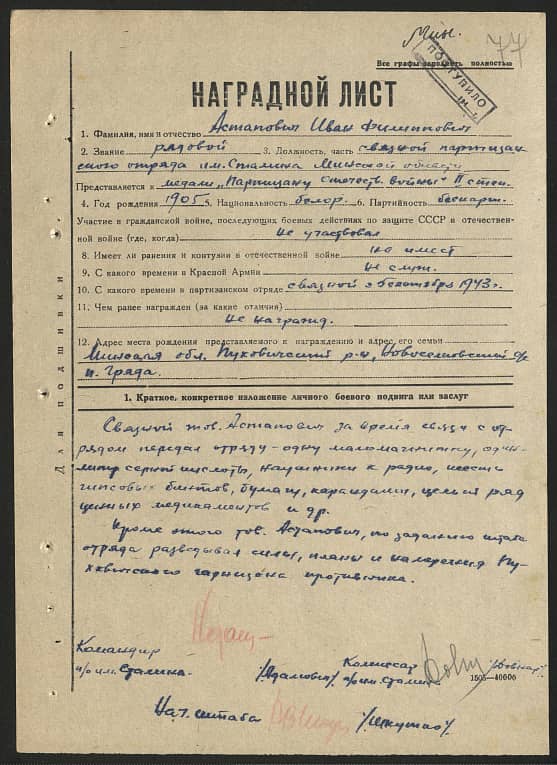 Мин.
77
Все графы заполнять полностью
ПОСТУПИЛО
НАГРАДНОЙ ЛИСТ
1. Фамилия, имя и отчество Астапович Иван Филиппович
2. Звание рядовой 3. Должность, часть связной партизан
ского отряда им. Сталина Минской области
Представляется к медали "Партизану Отечеств. войны" II степ.
4. Год рождения 1905 5. Национальность белор. 6. Партийность беспарт.
Участие в гражданской войне, последующих боевых действиях по защите СССР и отечествен-
ной войне (где, когда) не участвовал
8. Имеет ли ранения и контузии в отечественной войне не имеет
9. С какого времени в Красной Армии не служ.
10. С какого времени в партизанском отряде связной с 1943 г.
11. Чем ранее награжден (за какие отличия)
не награжд.
12. Адрес места рождения представляемого к награждению и адрес его семьи
Минская обл. Пуховичский р-н, Новоселковский
п. Града.
Для подшивки
1. Краткое, конкретное изложение личного боевого подвига или заслуг
Связной тов. Астапович за время связи с от
рядом передал отряду - одну маломагнитку, один
литр серной кислоты, наушники к радио, шесть
гипсовых бинтов, бумагу, карандаши, целый ряд
ценных медикаментов и др.
Кроме этого тов. Астапович, по заданию штаба
отряда разведывал силы, планы и намерения Пу-
гарнизона противника.
Командир
п/о им. Сталина /Адамович/
Комиссар
п/о им. Сталина
1505—40000
Нач. штаба